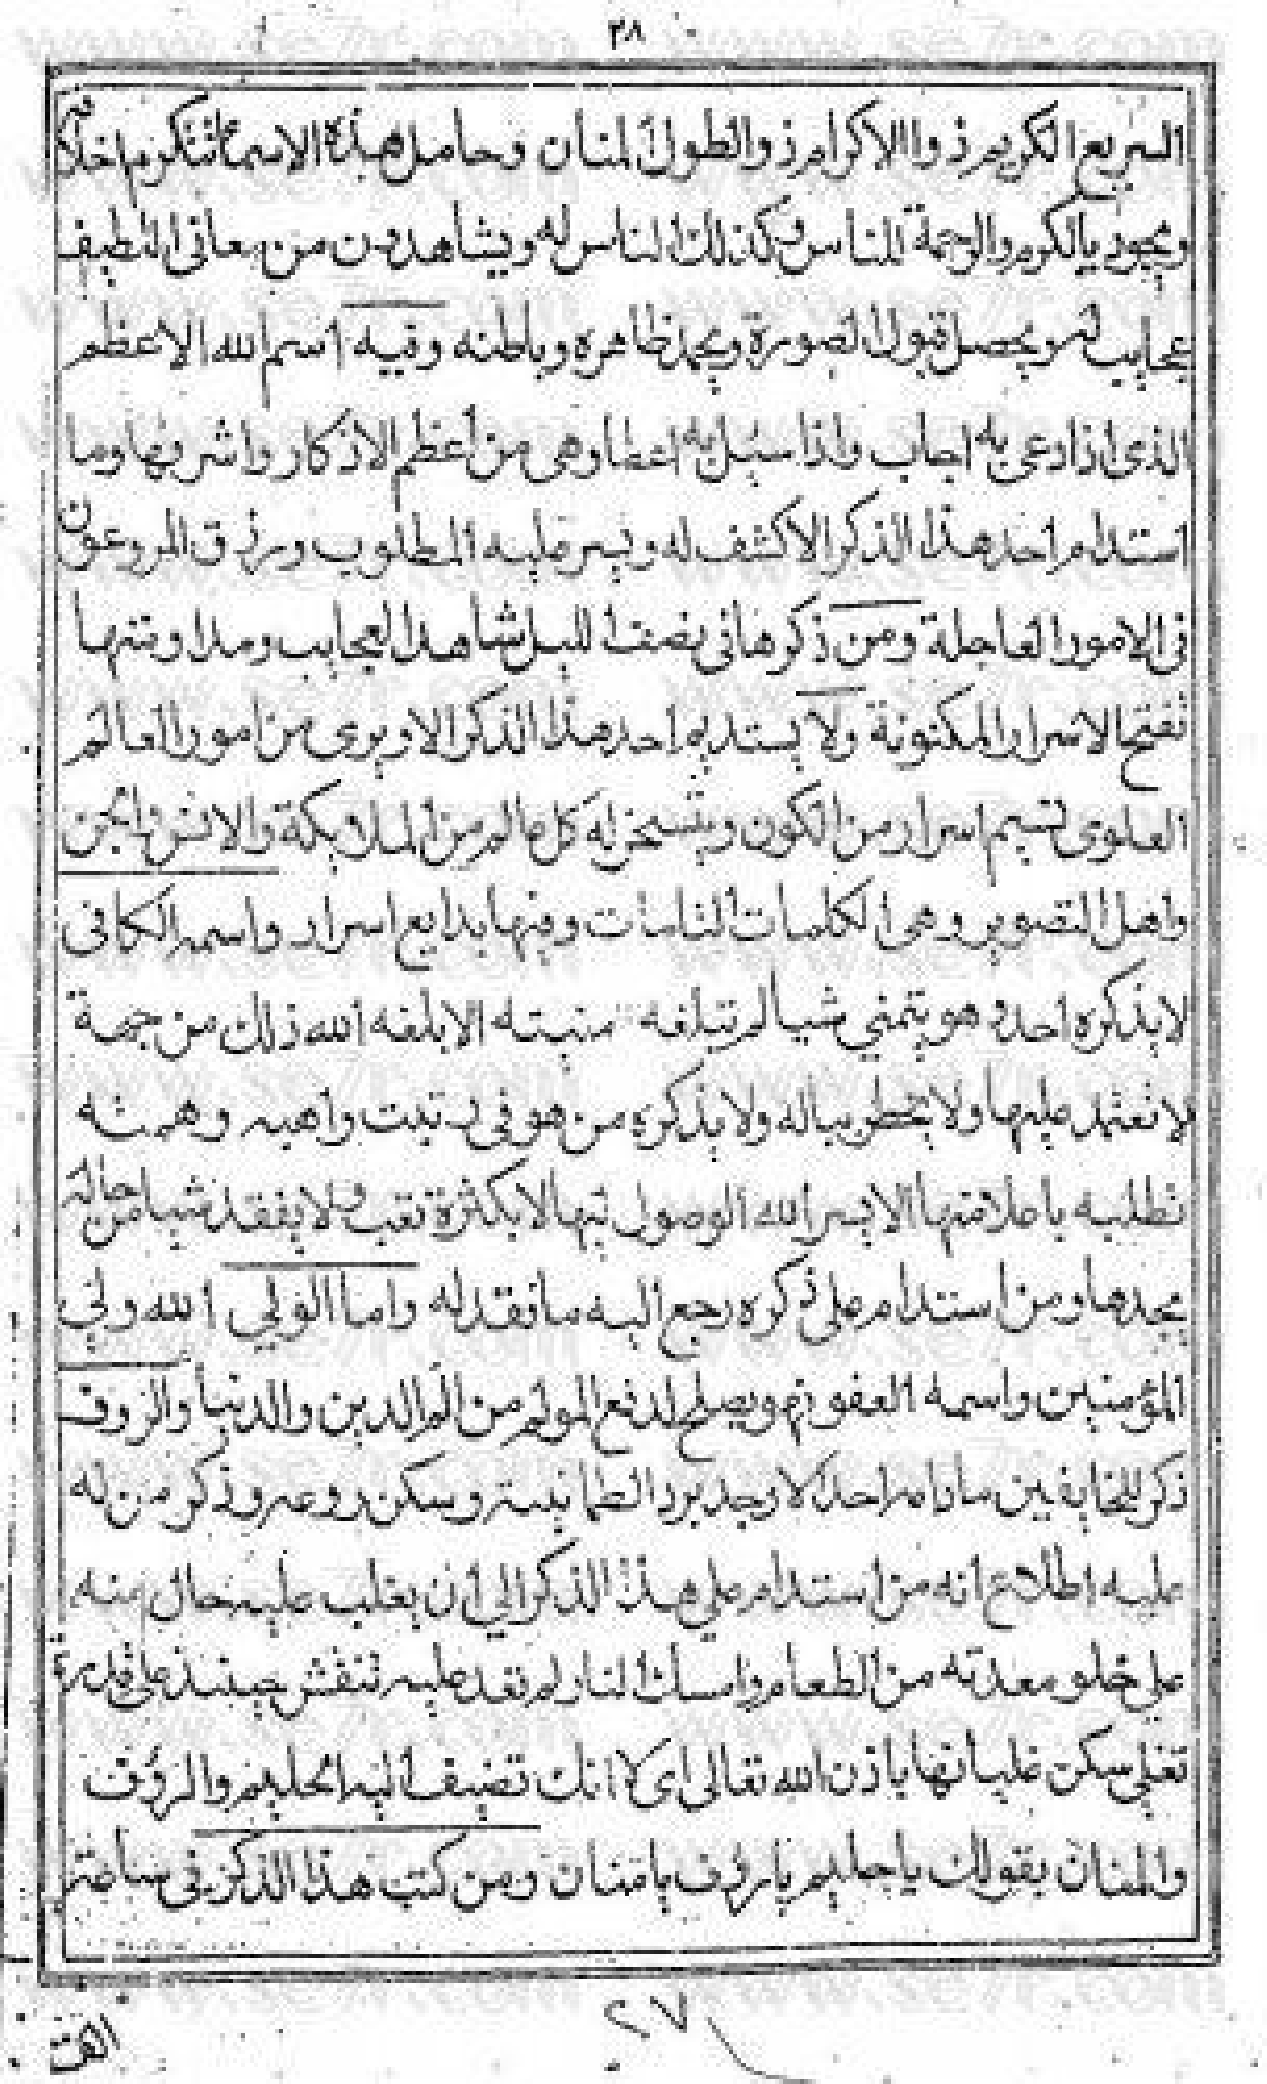 ٣٨
السريع الكريم ذوا الاكرام ذو الطول المنان وحامل هذه الاسما تتكرم اخلاقه
ويجود بالكرم والرحمة للناس وكذلك الناس له ويشاهدون من معانى اللطيف
عجايب ثم ويحصل قبول الصورة ويحمد ظاهره وباطنه وفيه اسم الله الاعظم
الذى اذا دعى به اجاب واذا سئل به اعطا وهى من اعظم الاذكار واشرفها وما
استدام احد هذا الذكر الا كشف له ويسر عليه المطلوب ورزق المروعون
فى الامور العاجلة ومن ذكرها فى نصف الليل شاهد العجايب ومداومتها
تفتح الاسرار المكنونة ولا يستديم احد هذا الذكر الا ويرى من امور العالم
العلوى اسرار من الكون ويتسخر له كل عالم من الملايكة والانس والجن
واهل التصوير وهى الكلمات التامات وفيها بدايع اسرار واسمه الكافى
لا يذكره احد وهو يتمنى شيا لم تبلغه منيته الا بلغه الله ذلك من جهة
لا تعتمد عليها ولا يخطر بباله ولا يذكره من هو فى رتبت واهيه وهمته
تطلبه باعلا منها الا يسر الله الوصول ليها لا بكثرة تعب ولا يفقد شيا من حاله
يجدها ومن استدام على ذكره رجع اليه ما فقد له واما الولي الله ولي
المؤمنين واسمه العفو فهو يصلح لدفع المولم من الم الدين والدنيا والروف
ذكر للخايفين ما دامه احد الا وجد برد الطمانينة وسكن روعه وذكر من له
عليه اطلاع انه من استدام على هذا الذكر الي ان يغلب عليه حال منه
على خلو معدته من الطعام وامسك النار لم تعد عليه تنفش حينئذ على قدرة
تغلى سكن غليانها باذن الله تعالى اى لا انك تضيف اليه الحليم والرؤف
والمنان بقولك ياحليم يارؤف يامنان ومن كتب هذا الذكر فى ساعة
٢٧